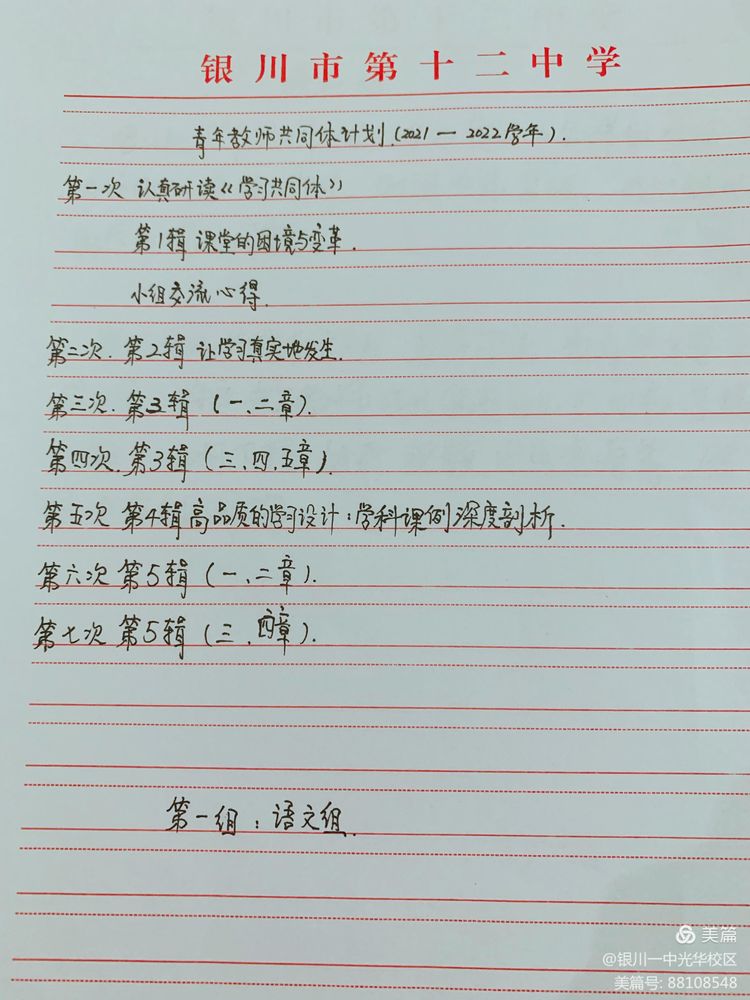 银川市第十二中学
青年教师共同体计划(2021—2022学年).
第一次 认真研读《学习共同体》
第1辑 课堂的困境与变革.
小组交流心得.
第二次. 第2辑 让学习真实地发生.
第三次. 第3辑 (一、二章).
第四次. 第3辑 (三、四、五章).
第五次 第4辑 高品质的学习设计:学科课例深度剖析.
第六次 第5辑 (一、二章).
第七次 第5辑 (三、四章).
第一组:语文组.
美篇
@银川一中光华校区
美篇号: 88108548